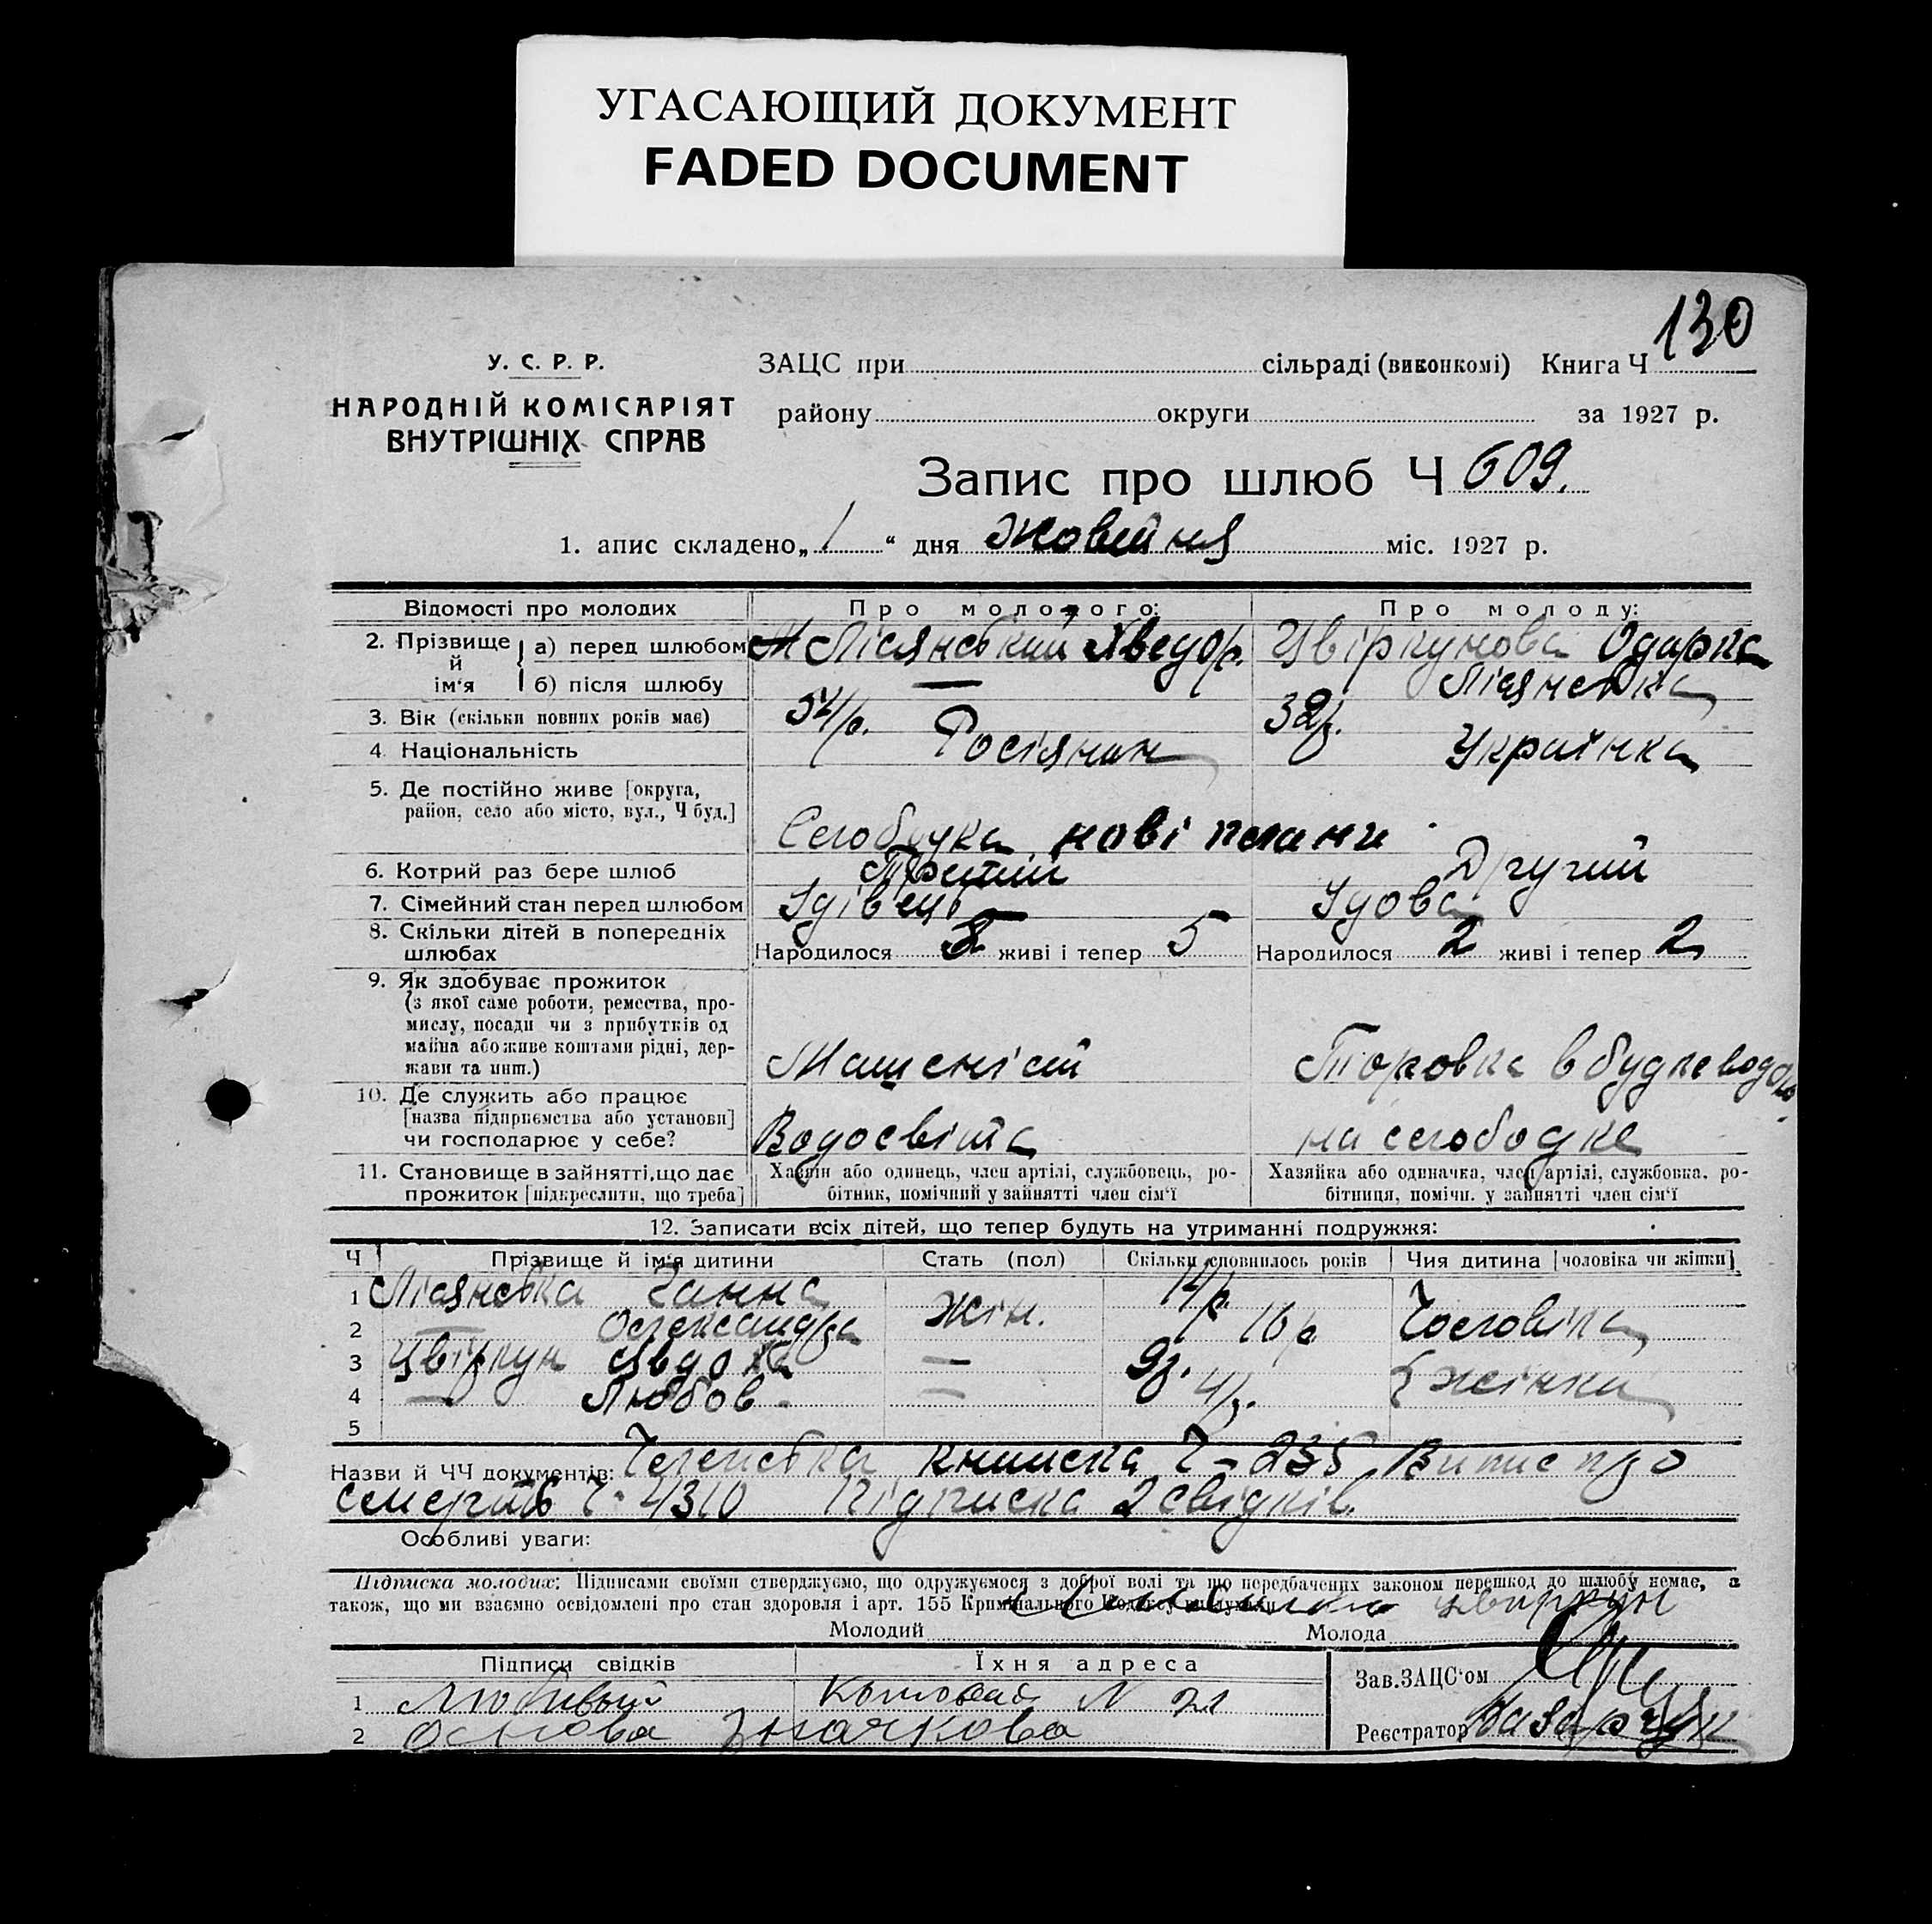 УГАСАЮЩИЙ ДОКУМЕНТ
FADED DOCUMENT
130
У. С. Р. Р.
НАРОДНІЙ КОМІСАРІЯТ
ВНУТРІШНІХ СПРАВ
ЗАЦС при сільраді (виконкомі) Книга Ч
району округи за 1927 р.
Запис про шлюб Ч 609.
1. апис складено „1“ дня Жовтня міс. 1927 р.
Відомості про молодих Про молодого: Про молоду:
2. Прізвище й ім'я а) перед шлюбом Лісянський Хведор. Цвіркунова Одарка
б) після шлюбу — Лісянська
3. Вік (скільки повних років має) 54 р. 32 р.
4 Національність Росіянин Українка
5. Де постійно живе [округа,
район, село або місто, вул., Ч буд.]
нові плани
6. Котрий раз бере шлюб Третій Другий
7. Сімейний стан перед шлюбом Удівець Удова
8. Скільки дітей в попередніх
шлюбах Народилося 8 живі і тепер 5 Народилося 2 живі і тепер 2
9. Як здобуває прожиток
(з якої саме роботи, ремества, про-
мислу, посади чи з прибутків од
майна або живе коштами рідні, дер-
жави та инш.) Машеніст Торовка в будке
10. Де служить або працює
[назва підприємства або установи]
чи господарює у себе? Водосвіта на слободке
11. Становище в зайнятті, що дає
прожиток [підкреслити, що треба]
Хазяїн або одинець, член артілі, службовець, ро-
бітник, помічний у зайнятті член сім'ї
Хазяйка або одиначка, член артілі, службовка. ро-
бітниця, помічн. у зайнятті член сім'ї
12. Записати всіх дітей, що тепер будуть на утриманні подружжя:
Ч Прізвище й ім'я дитини Стать (пол) Скільки сповнилось років Чия дитина [чоловіка чи жінки]
1 Лісянська Ганна жін. 14 р. Чоловіка
2 — Олександра 16 р
3 Цвіркун Явдоха — 9 р. жінки
4 — Любов — 4 р.
5
Назви й ЧЧ документів: Членська книжка Ч - 235 Випис про
смерть Ч - 4310 Підписка 2 свідків.
Особливі уваги:
Підписка молодих: Підписами своїми стверджуємо, що одружуємося з доброї волі та що передбачених законом перешкод до шлюбу немає, а
також, що ми взаємно освідомлені про стан здоровля і арт. 155 Кримінального Кодексу
Молодий Молода Цвиркун
Підписи свідків Їхня адреса
1 N 21
2 Основа Значкова
Зав. ЗАЦС'ом
Реєстратор